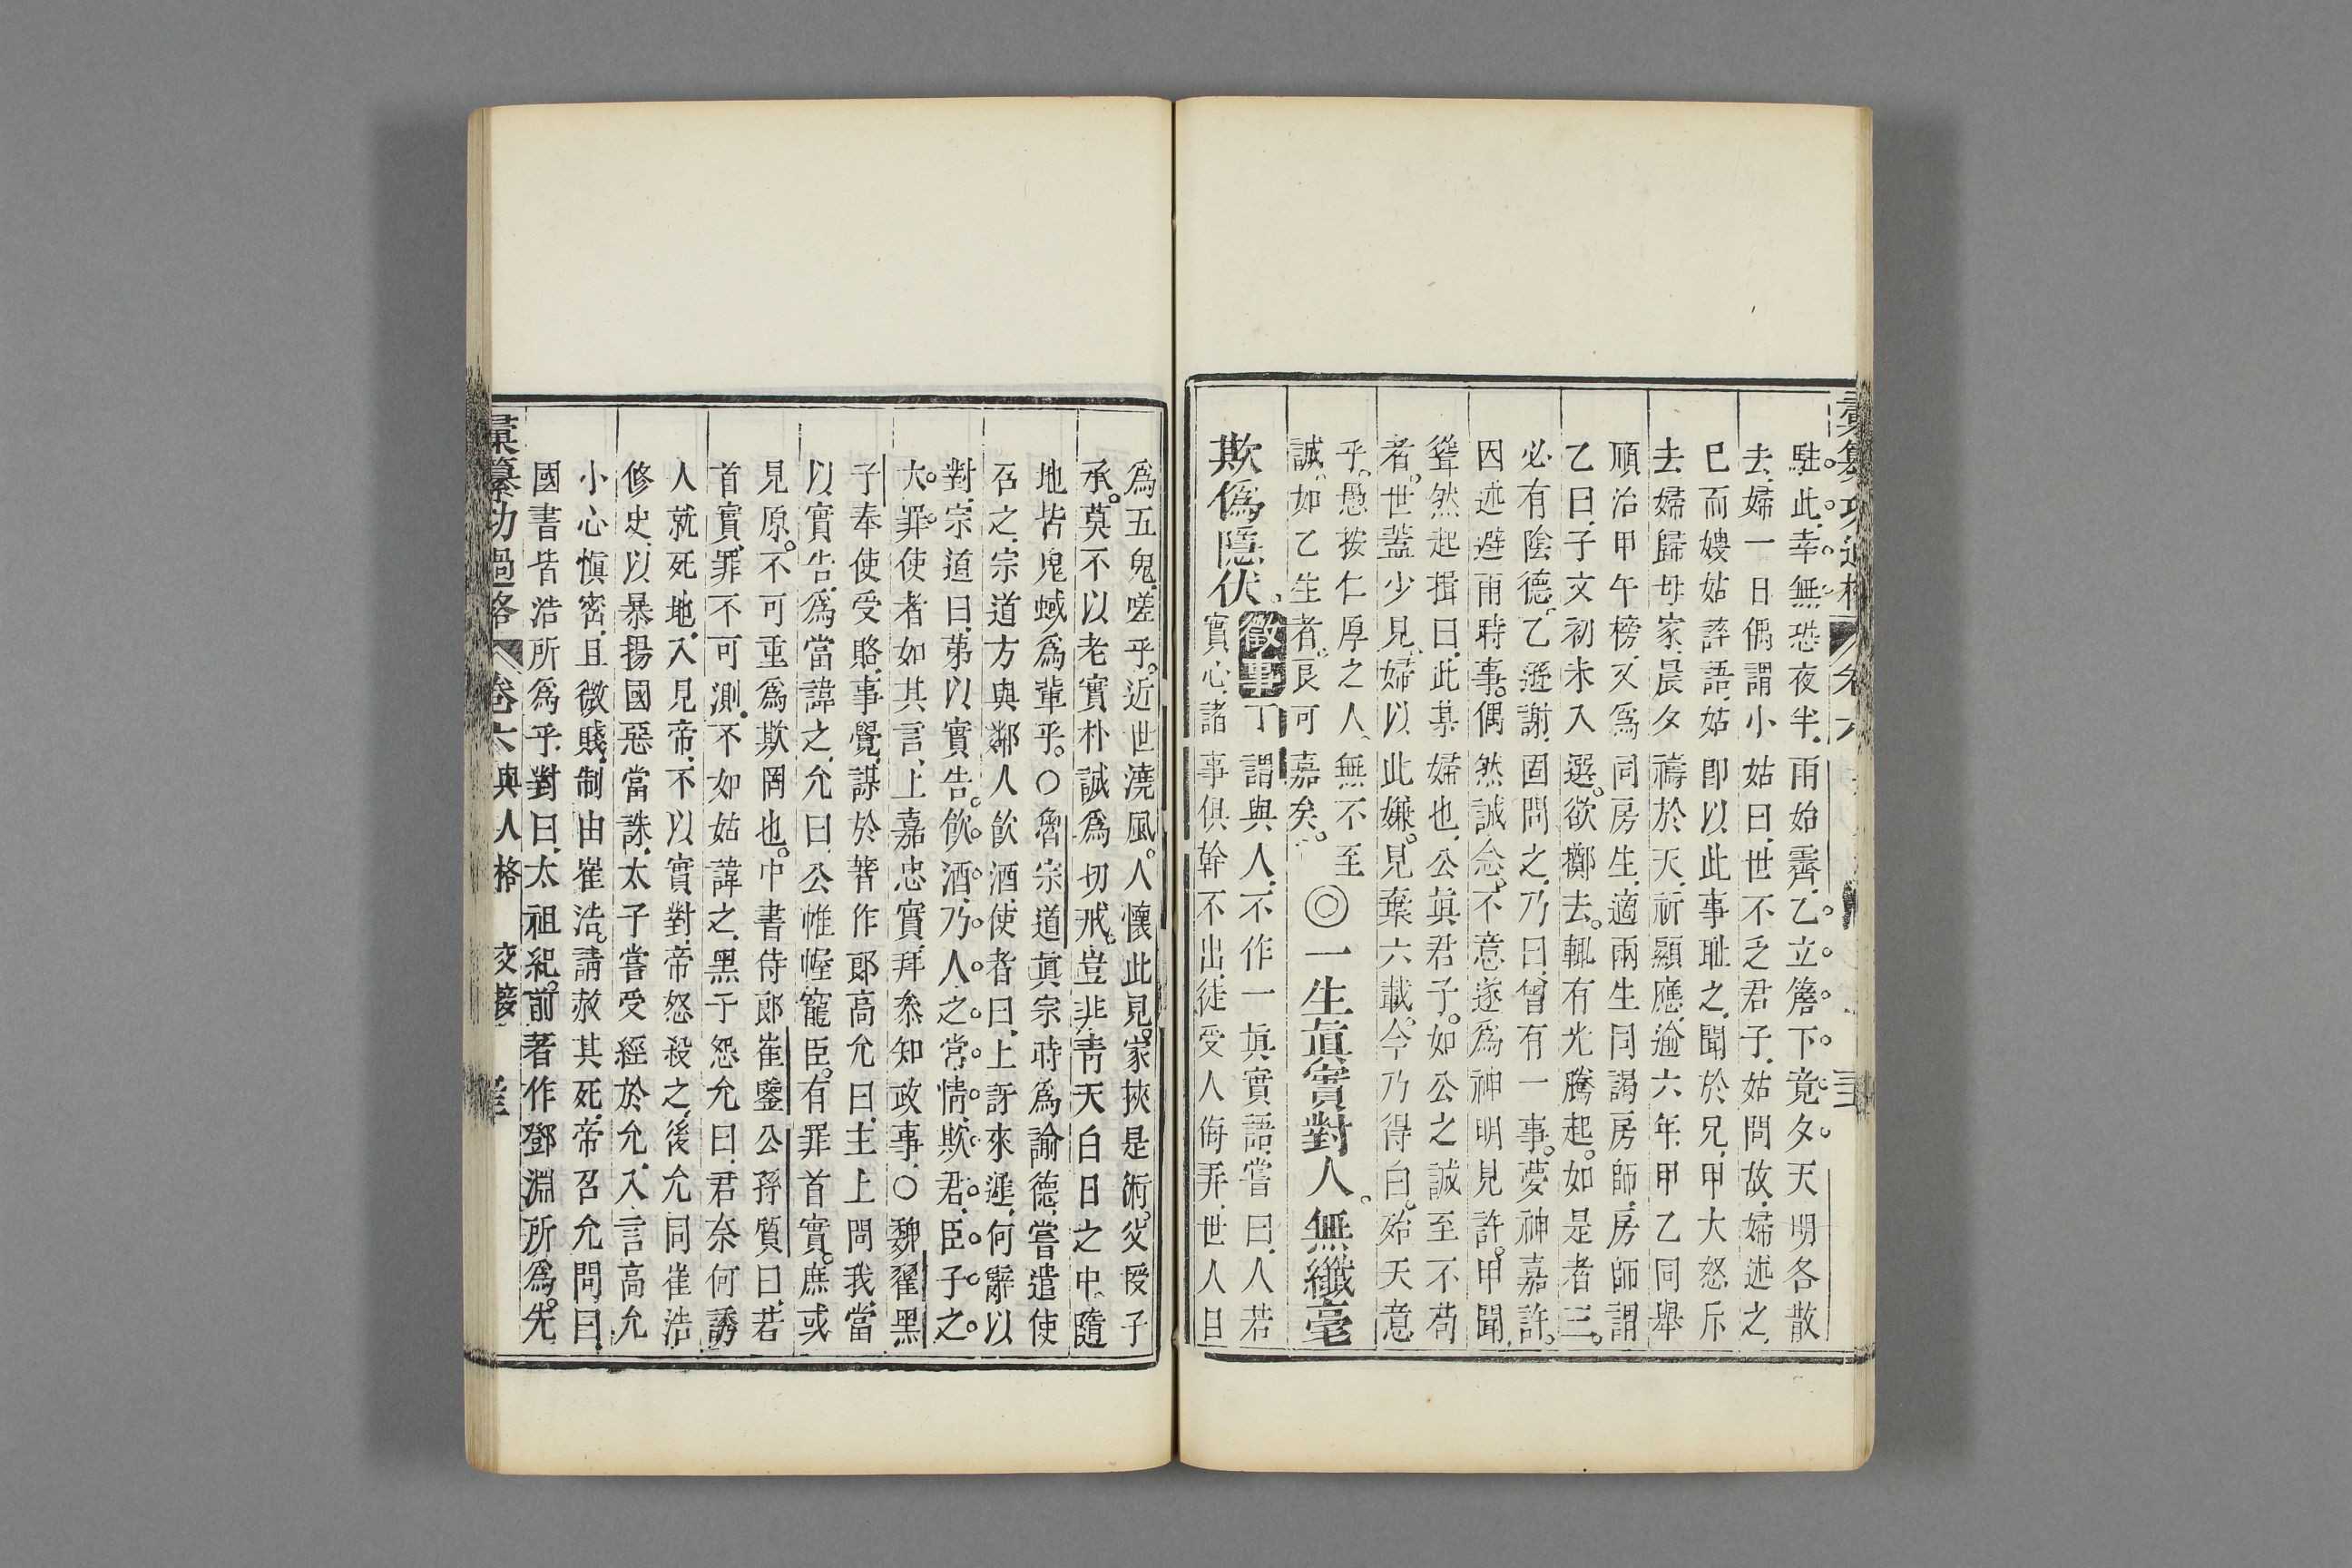 彚纂功過格 卷六
駐此。幸無恐。夜半。雨始霽。乙立簷下。竟夕。天明各散
去。婦一日偶謂小姑曰。世不乏君子。姑問故。婦述之。
已而嫂姑誶語。姑卽以此事耻之。聞於兄。甲大怒斥
去。婦歸母家。晨夕禱於天。祈顯應。逾六年。甲乙同舉
順治甲午榜。又爲同房生。適兩生同謁房師。房師謂
乙曰。子文初未入選。欲擲去。輒有光騰起。如是者三。
必有陰德。乙遜謝。固問之。乃曰。曾有一事。夢神嘉許。
因述避雨時事。偶然誠念。不意遂爲神明見許。甲聞。
聳然起揖曰。此某婦也。公眞君子。如公之誠至不苟
者。世葢少見。婦以此嫌。見棄六載。今乃得白。殆天意
乎。愚按仁厚之人。無不至
誠。如乙生者。良可嘉矣。◎一生眞實對人。無纖毫
欺僞隱伏。徵事丁謂與人。不作一眞實語。嘗曰。人若
實心。諸事俱幹不出。徒受人侮弄。世人目
爲五鬼。嗟乎。近世澆風。人懷此見。家挾是術。父授子
承。莫不以老實朴誠爲切戒。豈非靑天白日之中。隨
地皆鬼蜮爲輩乎。○魯宗道眞宗時爲諭德。嘗遣使
召之。宗道方與鄰人飮酒。使者曰。上訝來遲。何辭以
對。宗道曰。第以實告。飮酒。乃人之常情。欺君。臣子之
大罪。使者如其言。上嘉忠實。拜叅知政事。○魏翟黑
子奉使受賂。事覺。謀於著作郎高允曰。主上問我。當
以實告。爲當諱之。允曰。公帷幄寵臣。有罪首實。庶或
見原。不可重爲欺罔也。中書侍郎崔鑒公孫質曰。若
首實。罪不可測。不如姑諱之。黑子怨允曰。君奈何誘
人就死地。入見帝。不以實對。帝怒殺之。後允同崔浩
修史。以暴揚國惡當誅。太子嘗受經於允。入言高允
小心愼密。且微賤。制由崔浩。請赦其死。帝召允問曰。
國書皆浩所爲乎。對曰。太祖紀。前著作鄧淵所爲。先
彚纂功過格 卷六 與人格 交接